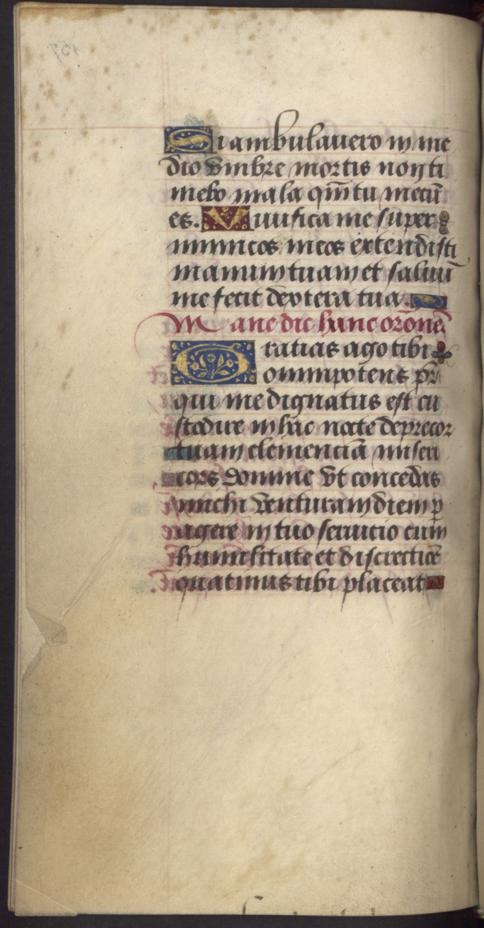 Si ambulauero in me
dio vmbre mortis non ti
mebo mala qm̄ tu mecū
es. Viuifica me super
inimicos meos extendisti
manum tuam et saluū
me fecit dextera tua.
Mane dic hanc orōnē
Gratias ago tibi
omnipotens pr̄
qui me dignatus est cu
stodire in hac nocte deprecor
tuam clemenciā miseri
cors domine vt concedas
michi venturam diem p
agere in tuo seruicio cum
humilitate et discrectiōe
quatinus tibi placeat